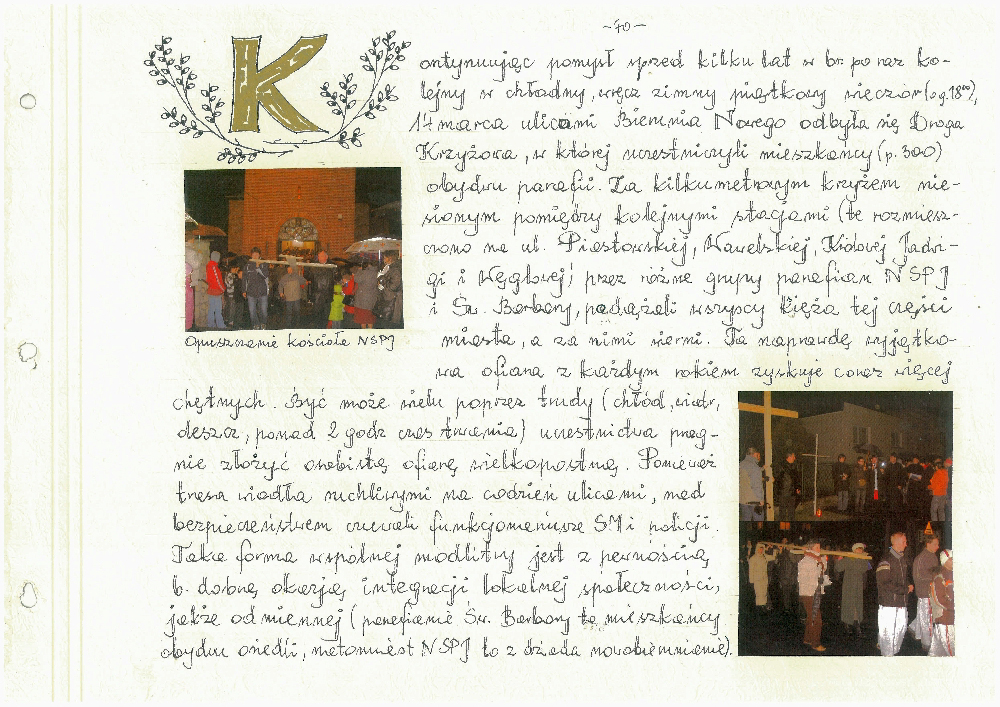 ~40~
Kontynuując pomysł sprzed kilku lat w br. po raz ko-
lejny w chłodny, wręcz zimny piątkowy wieczór (og. 18⁰⁰),
14 marca ulicami Bierunia Nowego odbyła się Droga
Krzyżowa, w której uczestniczyli mieszkańcy (p. 300)
obydwu parafii. Za kilkumetrowym krzyżem nie-
sionym pomiędzy kolejnymi stacjami (te rozmiesz-
czono na ul. Piastowskiej, Wawelskiej, Królowej Jadwi-
gi i Węglowej) przez różne grupy parafian NSPJ
i Św. Barbary, podążali wszyscy księża tej części
miasta, a za nimi wierni. Ta naprawdę wyjątko-
wa ofiara z każdym rokiem zyskuje coraz więcej
Opuszczenie kościoła NSPJ
chętnych. Być może wielu poprzez trudy (chłód, wiatr,
deszcz, ponad 2 godz czas trwania) uczestnictwa prag-
nie złożyć osobistą ofiarę wielkopostną. Ponieważ
trasa wiodła ruchliwymi na codzień ulicami, nad
bezpieczeństwem czuwali funkcjonariusze SM i policji.
Taka forma wspólnej modlitwy jest z pewnością
b. dobrą okazją integracji lokalnej społeczności,
jakże odmiennej (parafianie Św. Barbary to mieszkańcy
obydwu osiedli, natomiast NSPJ to z dziada nowobierunianie).